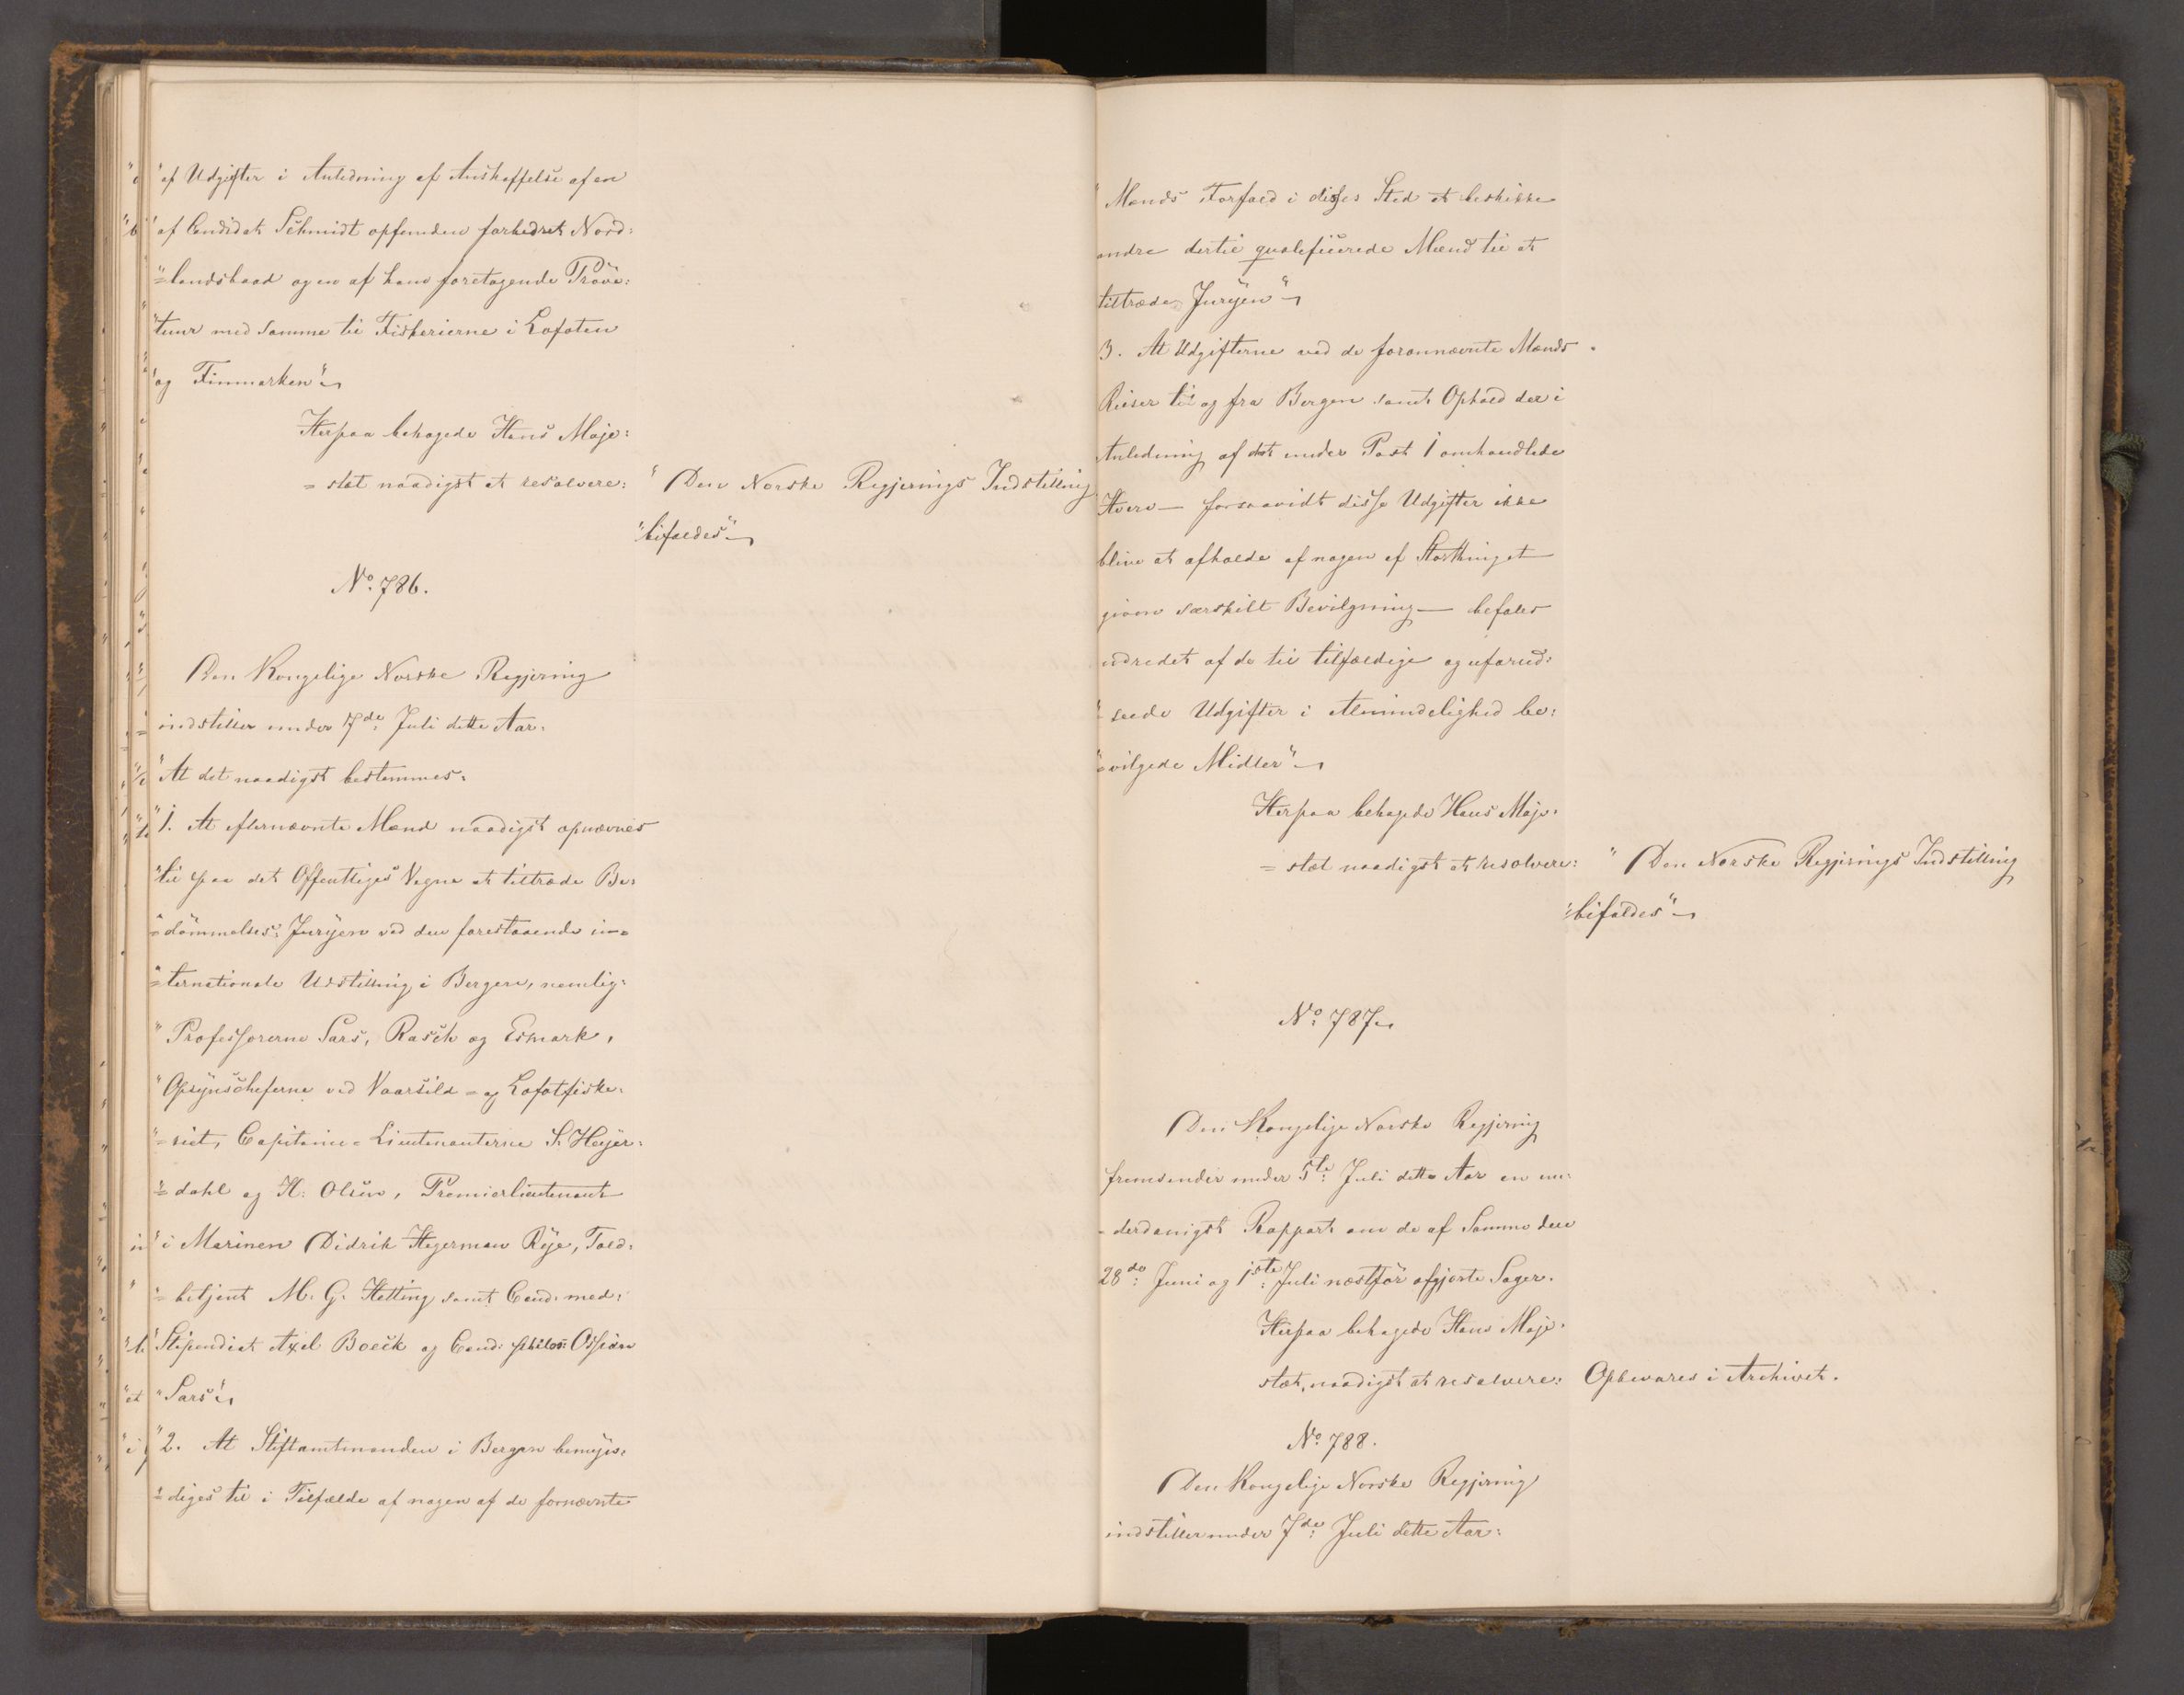 "af Udgifter i Anledning af Anskaffelse af en
"af Candidat Schmidt opfunden forbedret Nord:
"=landsbaad og en af ham foretagende Pröve:
"tuur med samme til Fiskerierne i Lofoten
"og Finmarken"
Herpaa behagede Hans Maje:
=stæt naadigst at resolvere: "Den Norske Regjerings Indstilling
"bifaldes"
No. 786.
Den Kongelige Norske Regjering
indstiller under 7de Juli dette Aar:
"At det naadigst bestemmes:
"1. At efternævnte Mænd naadigst opnævnes
"til paa det Offentliges Vegne at tiltræde Be:
"=dömmelses: Juryen ved den forestaaende in=
"=ternationale Udstilling i Bergen, nemlig:
"Professorerne Sars, Rasch og Esmark,
"Opsynscheferne ved Vaarsild= og Lofotfiske:
"=riet, Capitaine=Lieutenanterne S. Heyer:
"=dahl og H. Olsen, Premierlieutenant
"i Marinen Didrik Hegerman Rye, Told:
"=betjent M. G. Hetting samt Cand: med:
"Stipendiat Axel Boeck og Cand: philos: Ossian
"Sars"
"2. At Stiftamtmanden i Bergen bemyn:
"=diges til i Tilfælde af nogen af de fornævnte
"Mænds Forfald i disses Sted at beskikke
andre dertil qualificerede Mænd til at
tiltræde Juryen"
3. At Udgifterne ved de forannævnte Mænds
Reiser til og fra Bergen samt Ophold der i
Anledning af det under Post 1 omhandlede
Hverv — forsaavidt disse Udgifter ikke
blive at afholde af nogen af Storthinget
given særskilt Bevilgning — befales
udredet af de til tilfældige og uforud:
"=seede Udgifter i Almindelighed be:
"=vilgede Midler"
Herpaa behagede Hans Maje:
=stæt naadigst at resolvere: "Den Norske Regjerings Indstilling
"bifaldes"
No. 787.
Den Kongelige Norske Regjering
fremsender under 5te Juli dette Aar en un:
=derdanigst Rapport om de af Samme den
28de Juni og 1ste Juli næstför afgjorte Sager.
Herpaa behagede Hans Maje:
stæt, naadigst at resolvere: Opbevares i Archivet.
No. 788.
Den Kongelige Norske Regjering
indstiller under 7de Juli dette Aar: